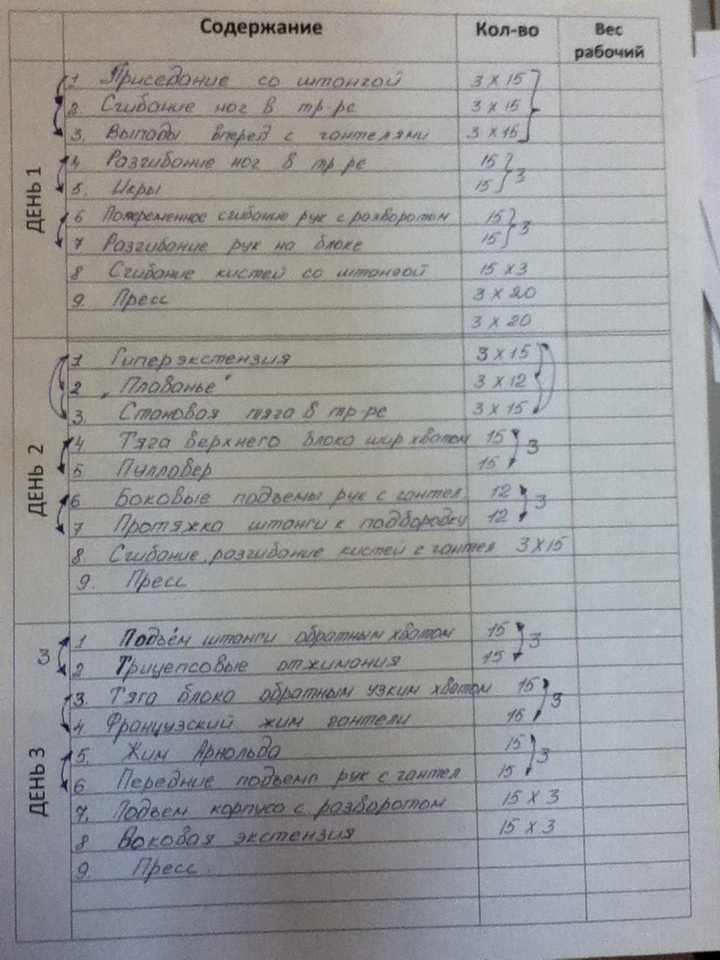 Содержание Кол-во Вес рабочий
ДЕНЬ 1
1 Приседание со штангой 3 х 15
2. Сгибание ног в тр-ре 3 х 15
3. Выпады вперед с гантелями 3 х 15
4. Разгибание ног в тр-ре 15 } 3
5. Икры 15
6 Попеременное сгибание рук с разворотом 15 } 3
7 Разгибание рук на блоке 15
8 Сгибание кистей со штангой 15 х 3
9. Пресс 3 х 20
3 х 20
ДЕНЬ 2
1 Гиперэкстензия 3 х 15
2 „Плаванье" 3 х 12
3. Становая тяга в тр-ре 3 х 15
4. Тяга верхнего блока шир хватом 15 3
5 Пулловер 15
6 Боковые подъемы рук с гантел. 12 3
7 Протяжка штанги к подбородку 12
8. Сгибание, разгибание кистей с гантел 3 х 15
9. Пресс
ДЕНЬ 3
3
1 Подъём штанги обратным хватом 15 3
2 Трицепсовые отжимания 15
3. Тяга блока обратным узким хватом 15 3
4. Французский жим гантели 15
5. Жим Арнольда 15 3
6 Передние подъемп рук с гантел 15
7. Подъем корпуса с разворотом 15 х 3
8 Боковая экстензия 15 х 3
9. Пресс